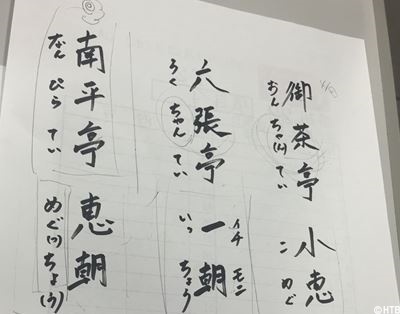 御茶亭 小恵
おん ちゃ(ん) てい こ めぐ
イチ モン
六張亭 一朝
ろく ちゃん てい いっ ちょう
南平亭 恵朝
なん ひら てい めぐ(ん)ちょ(う)
©HTB